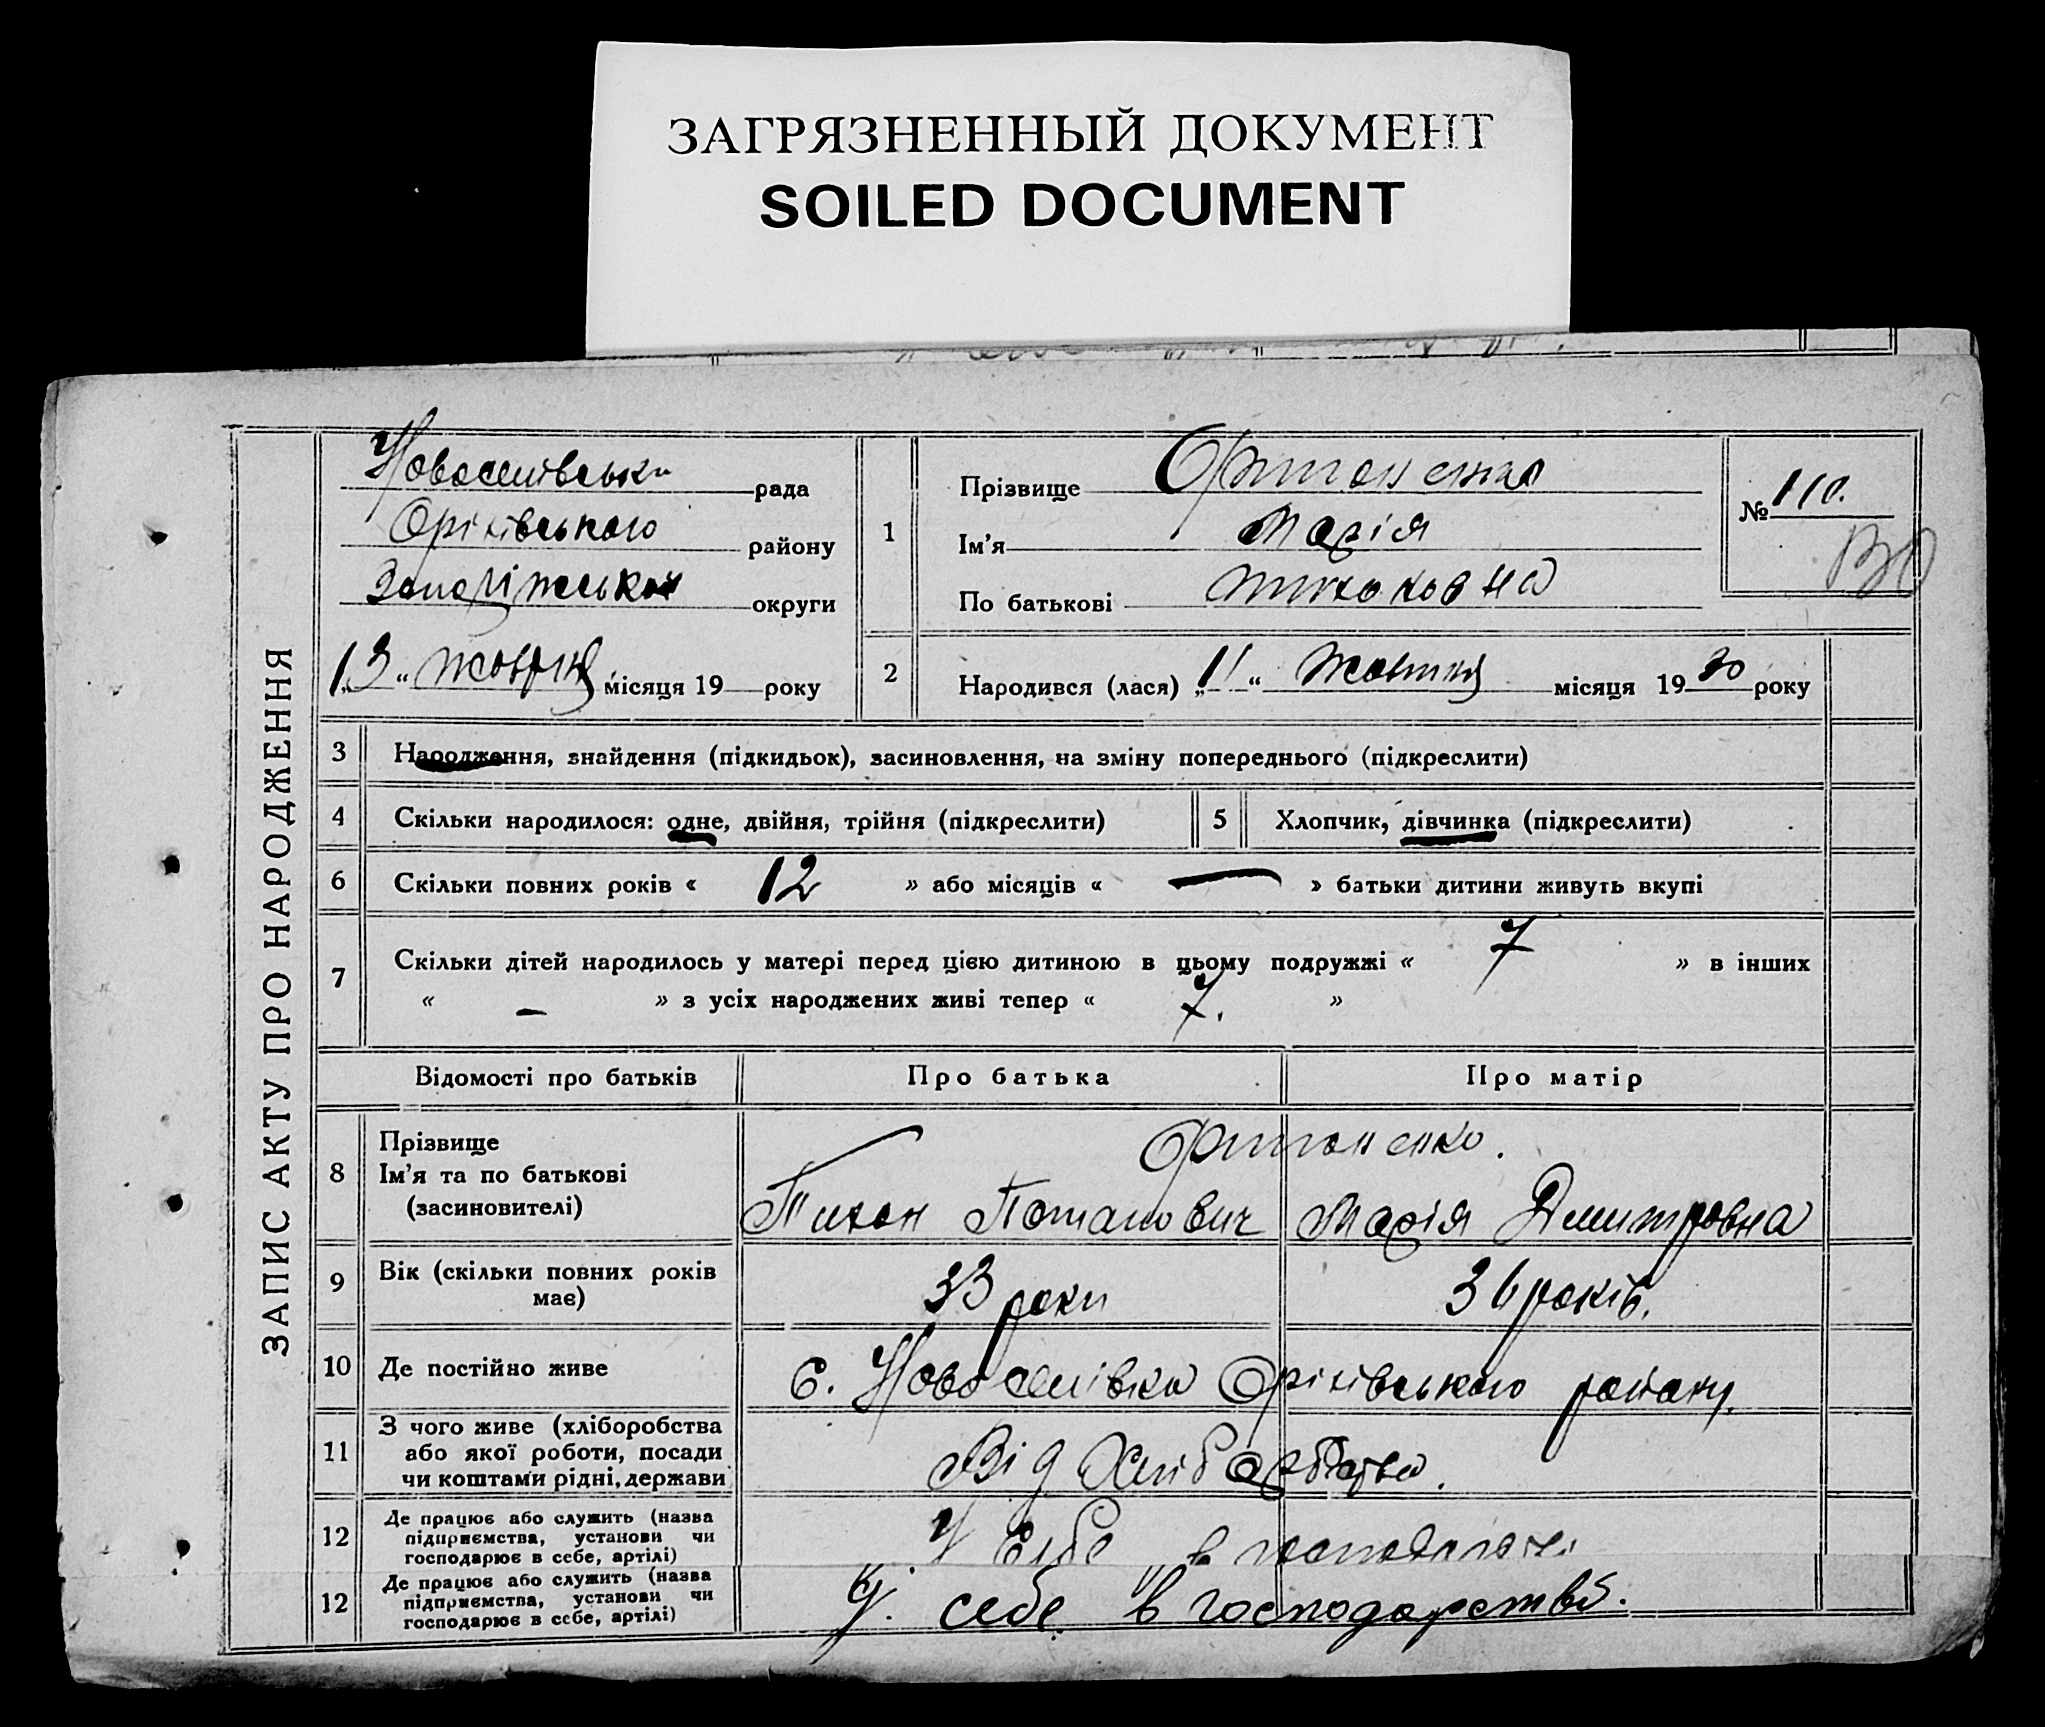 ЗАГРЯЗНЕННЫЙ ДОКУМЕНТ
SOILED DOCUMENT
ЗАПИС АКТУ ПРО НАРОДЖЕННЯ
Новоселівська рада
Оріхівського району
Запоріжської округи
„13“ жовтня місяця 19 року
1
Прізвище
Ім'я Марія
По батькові Тихоновна
№ 110.
2 Народився (лася) „11“ жовтня місяця 1930 року
3 Народження, знайдення (підкидьок), засиновлення, на зміну попереднього (підкреслити)
4 Скільки народилося: одне, двійня, трійня (підкреслити)
5 Хлопчик, дівчинка (підкреслити)
6 Скільки повних років « 12 » або місяців « — » батьки дитини живуть вкупі
7 Скільки дітей народилось у матері перед цією дитиною в цьому подружжі « 7 » в інших
« – » з усіх народжених живі тепер « 7. »
Відомості про батьків Про батька Про матір
8 Прізвище
Ім'я та по батькові
(засиновителі)
Тихон Потапович Марія Дмитровна
9 Вік (скільки повних років
має)
33 роки 36 років.
10 Де постійно живе с. Новоселівка Оріхівського району.
11 З чого живе (хліборобства
або якої роботи, посади
чи коштами рідні, держави
Від Хліборобства.
12 Де працює або служить (назва
підприємства, установи чи
господарює в себе, артілі)
У себе в
12 Де працює або служить (назва
підприємства, установи чи
господарює в себе, артілі)
У. себе в господарстві.